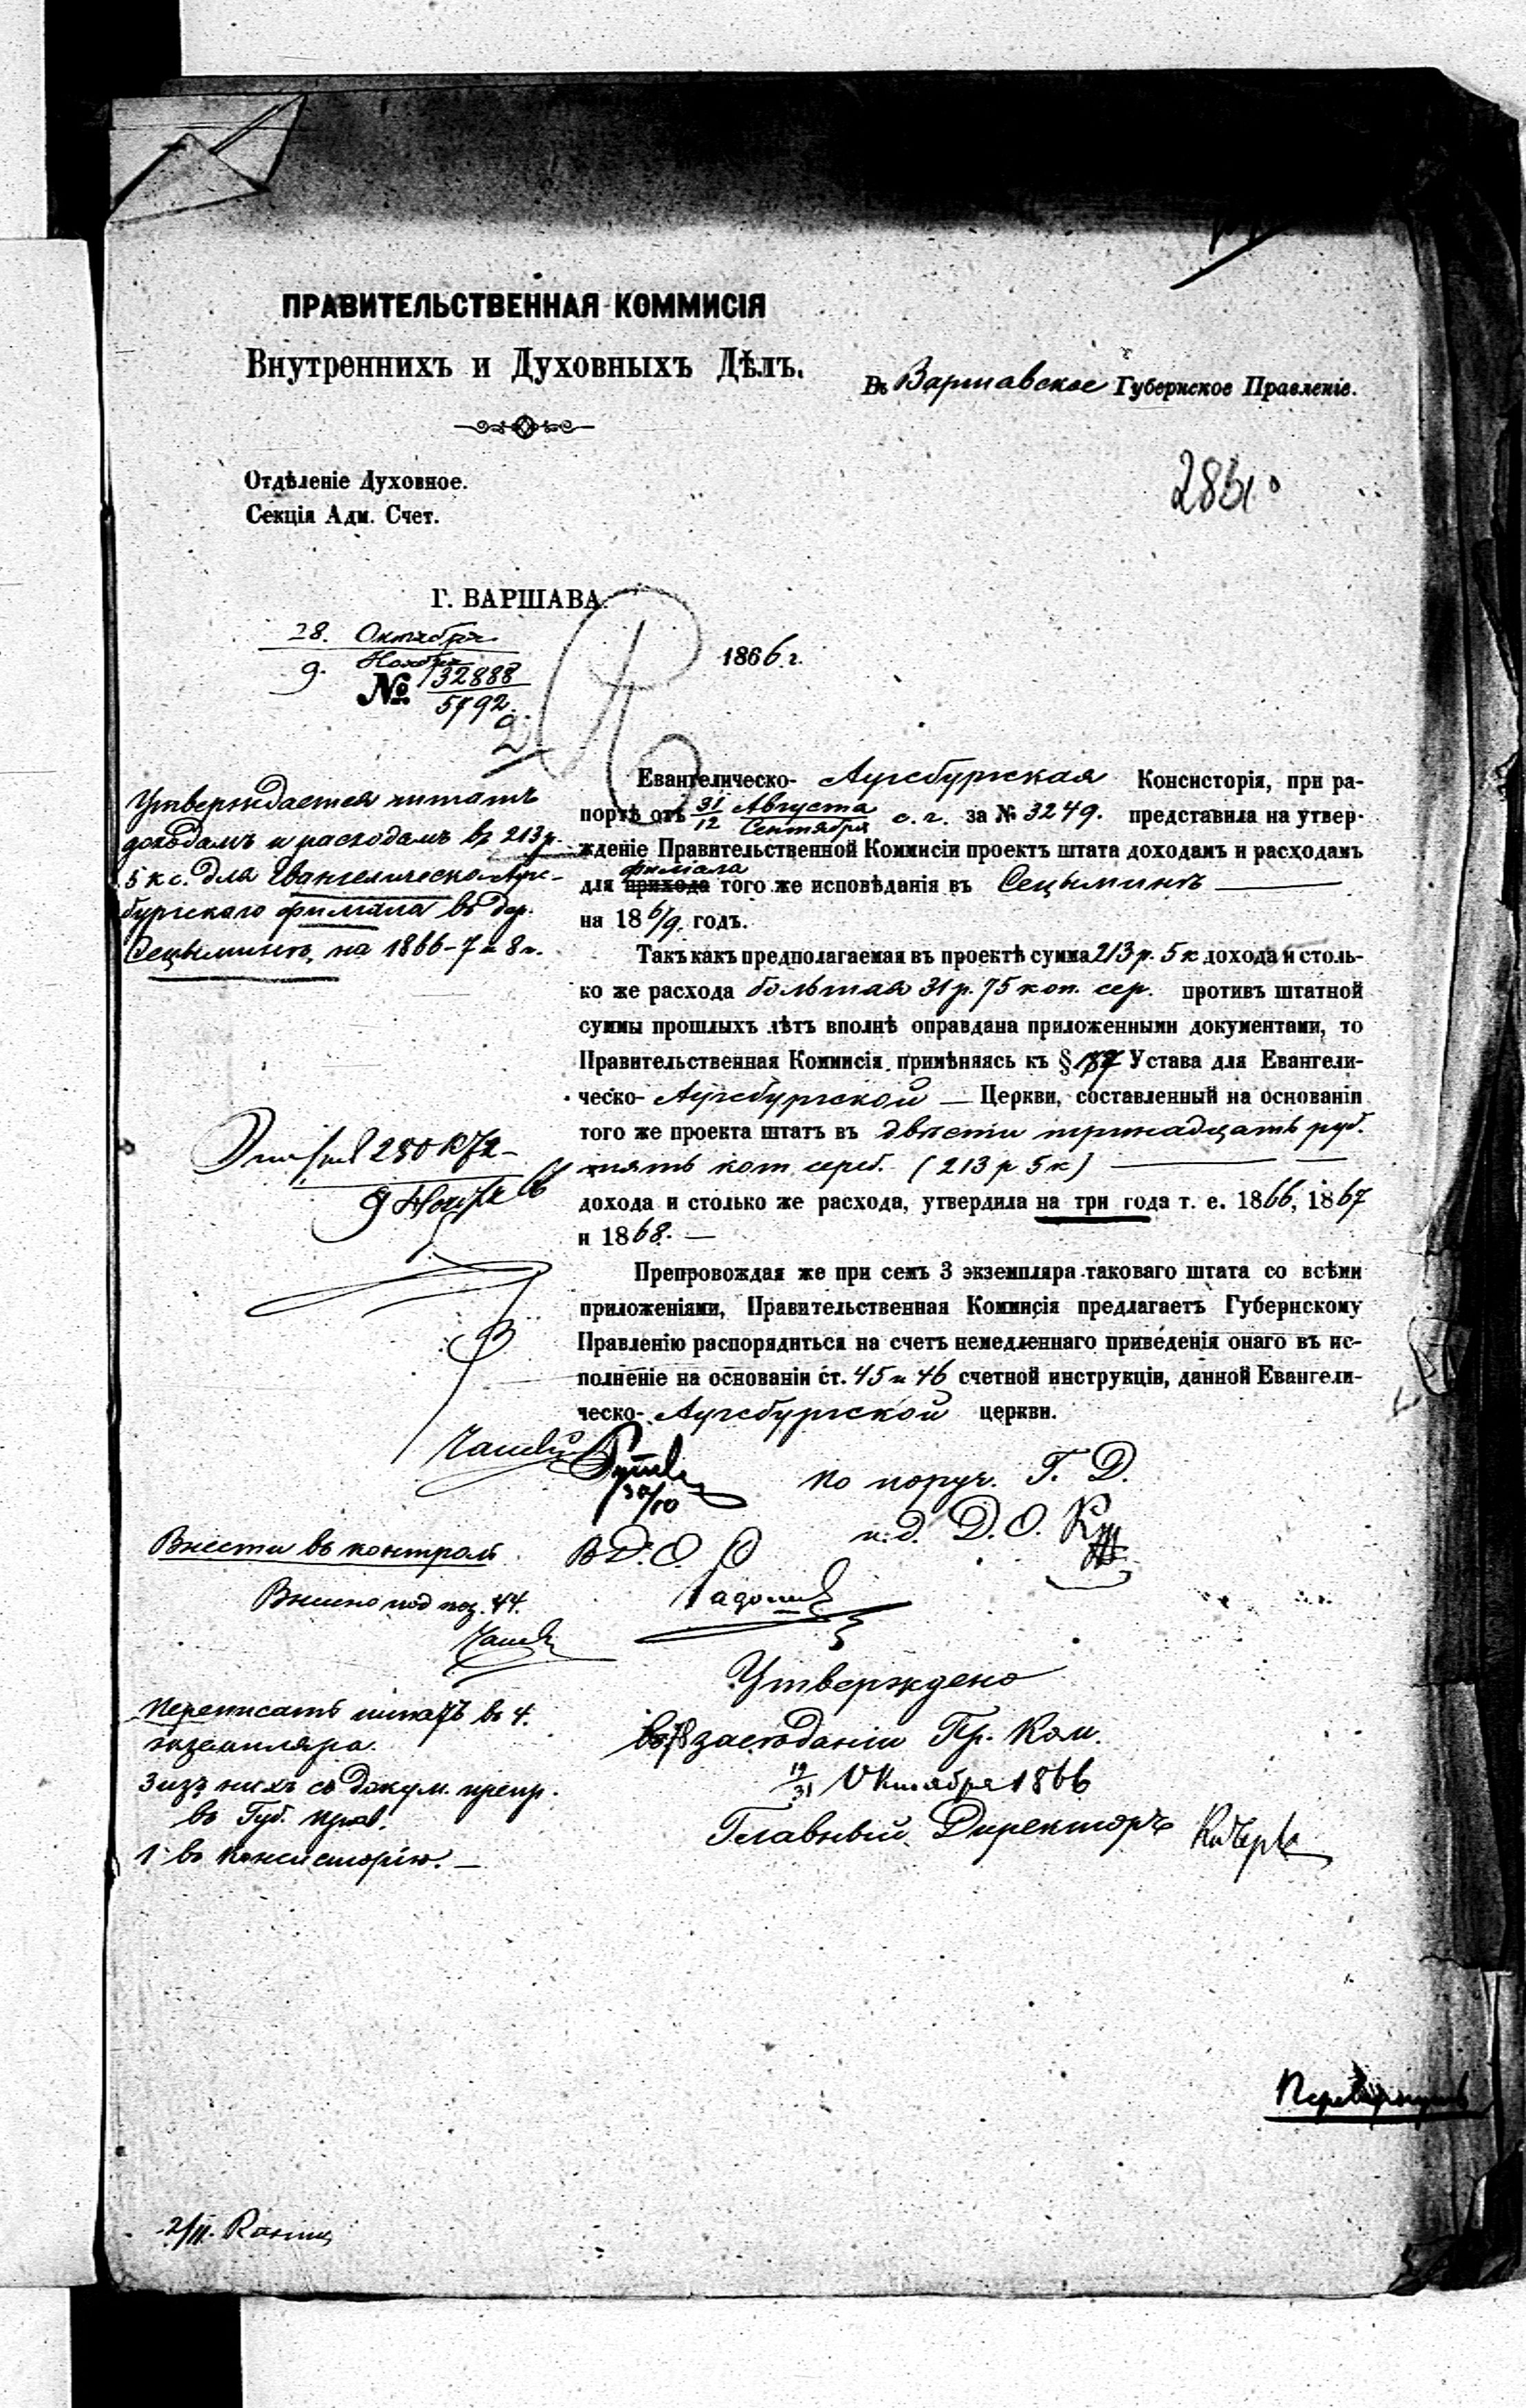 ПРАВИТЕЛЬСТВЕННАЯ КОММИСІЯ
Внутреннихъ и Духовныхъ Дѣлъ.
Въ Варшавское Губернское Правленіе.
Отдѣленіе Духовное.
Секція Адм. Счет.
Г. ВАРШАВА
28. Октября
9. Ноября
1866 г.
№ 32888
5792
Утверждается штатъ
доходамъ и расходамъ въ 213 р.
5 к с. для Евангелическо-Аугс-
бургскаго филiала въ дер.
Сецыминъ, на 1866-7 и 8 г.
Евангелическо- Аугсбургская Консисторія, при ра-
портѣ отъ 31/12 Августа/Сентября с. г. за № 3249. представила на утвер-
жденіе Правительственной Коммисіи проектъ штата доходамъ и расходамъ
филiала
для прихода того же исповѣданія въ Сецыминъ
на 18 6/9. годъ.
Такъ какъ предполагаемая въ проектѣ сумма 213 р. 5 к дохода и столь-
ко же расхода большая 31 р. 75 коп. сер. противъ штатной
суммы прошлыхъ лѣтъ вполнѣ оправдана приложенными документами, то
Правительственная Коммисія примѣняясь къ § Устава для Евангели-
ческо- Аугсбургской — Церкви, составленный на основаніи
того же проекта штатъ въ двѣсти тринадцать руб.
пять коп. сереб. (213 р 5 к)
дохода и столько же расхода, утвердила на три года т. е. 1866, 1867
и 1868. —
Препровождая же при семъ 3 экземпляра таковаго штата со всѣми
приложеніями, Правительственная Коммисія предлагаетъ Губернскому
Правленію распорядиться на счетъ немедленнаго приведенія онаго въ ис-
полненіе на основаніи ст. 45 и 46 счетной инструкціи, данной Евангели-
ческо- Аугсбургской церкви.
30/10
по поруч. Г. Д.
и. д. Д. О.
В. Д. О.
Внести въ контроль
Внесено под поз. 44.
Переписать штатъ въ 4.
экземпляра.
3 изъ нихъ съ докум. препр.
въ Губ. прав.
1 въ Консисторію. —
Утверждено
въ засѣданіи Пр. Ком.
19/31 Октября 1866
Главный Директоръ
2/11.